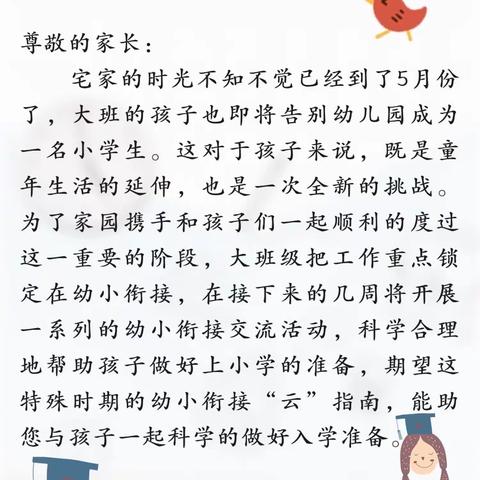 尊敬的家长：
宅家的时光不知不觉已经到了5月份
了，大班的孩子也即将告别幼儿园成为
一名小学生。这对于孩子来说，既是童
年生活的延伸，也是一次全新的挑战。
为了家园携手和孩子们一起顺利的度过
这一重要的阶段，大班级把工作重点锁
定在幼小衔接，在接下来的几周将开展
一系列的幼小衔接交流活动，科学合理
地帮助孩子做好上小学的准备，期望这
特殊时期的幼小衔接“云”指南，能助
您与孩子一起科学的做好入学准备。